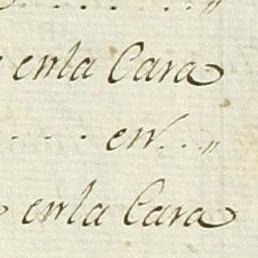 . . . . . . . "
en la Cara
. . . . en. . . "
en la Cara